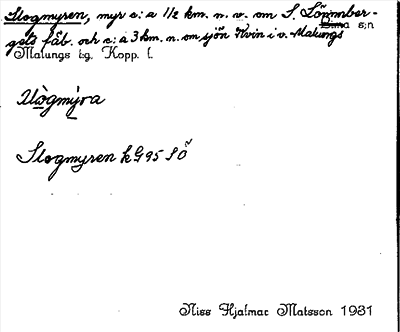 Slogmyren, myr c:a 1/2 km. n. v. om S. Lönnber-
gets fäb. och c:a 3 km. n. om sjön Kvin i v. Malungs
Lima s:n
Malungs tg. Kopp. l.
Slogmyren kG 95 SÖ
Niss Hjalmar Matsson 1931